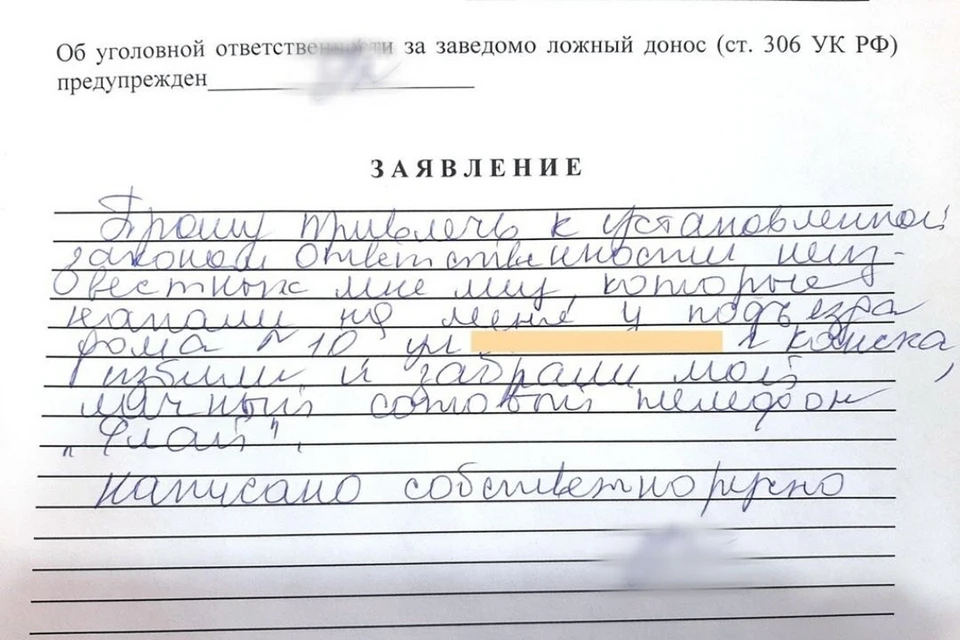 Об уголовной ответственности за заведомо ложный донос (ст. 306 УК РФ)
предупрежден
ЗАЯВЛЕНИЕ
Прошу привлечь к установленной
законом ответственности неиз-
вестных мне лиц, которые
напали на меня у подъезда
дома № 10 ул г Канска,
избили и забрали мой
личный сотовый телефон
„Флай".
Написано собственноручно